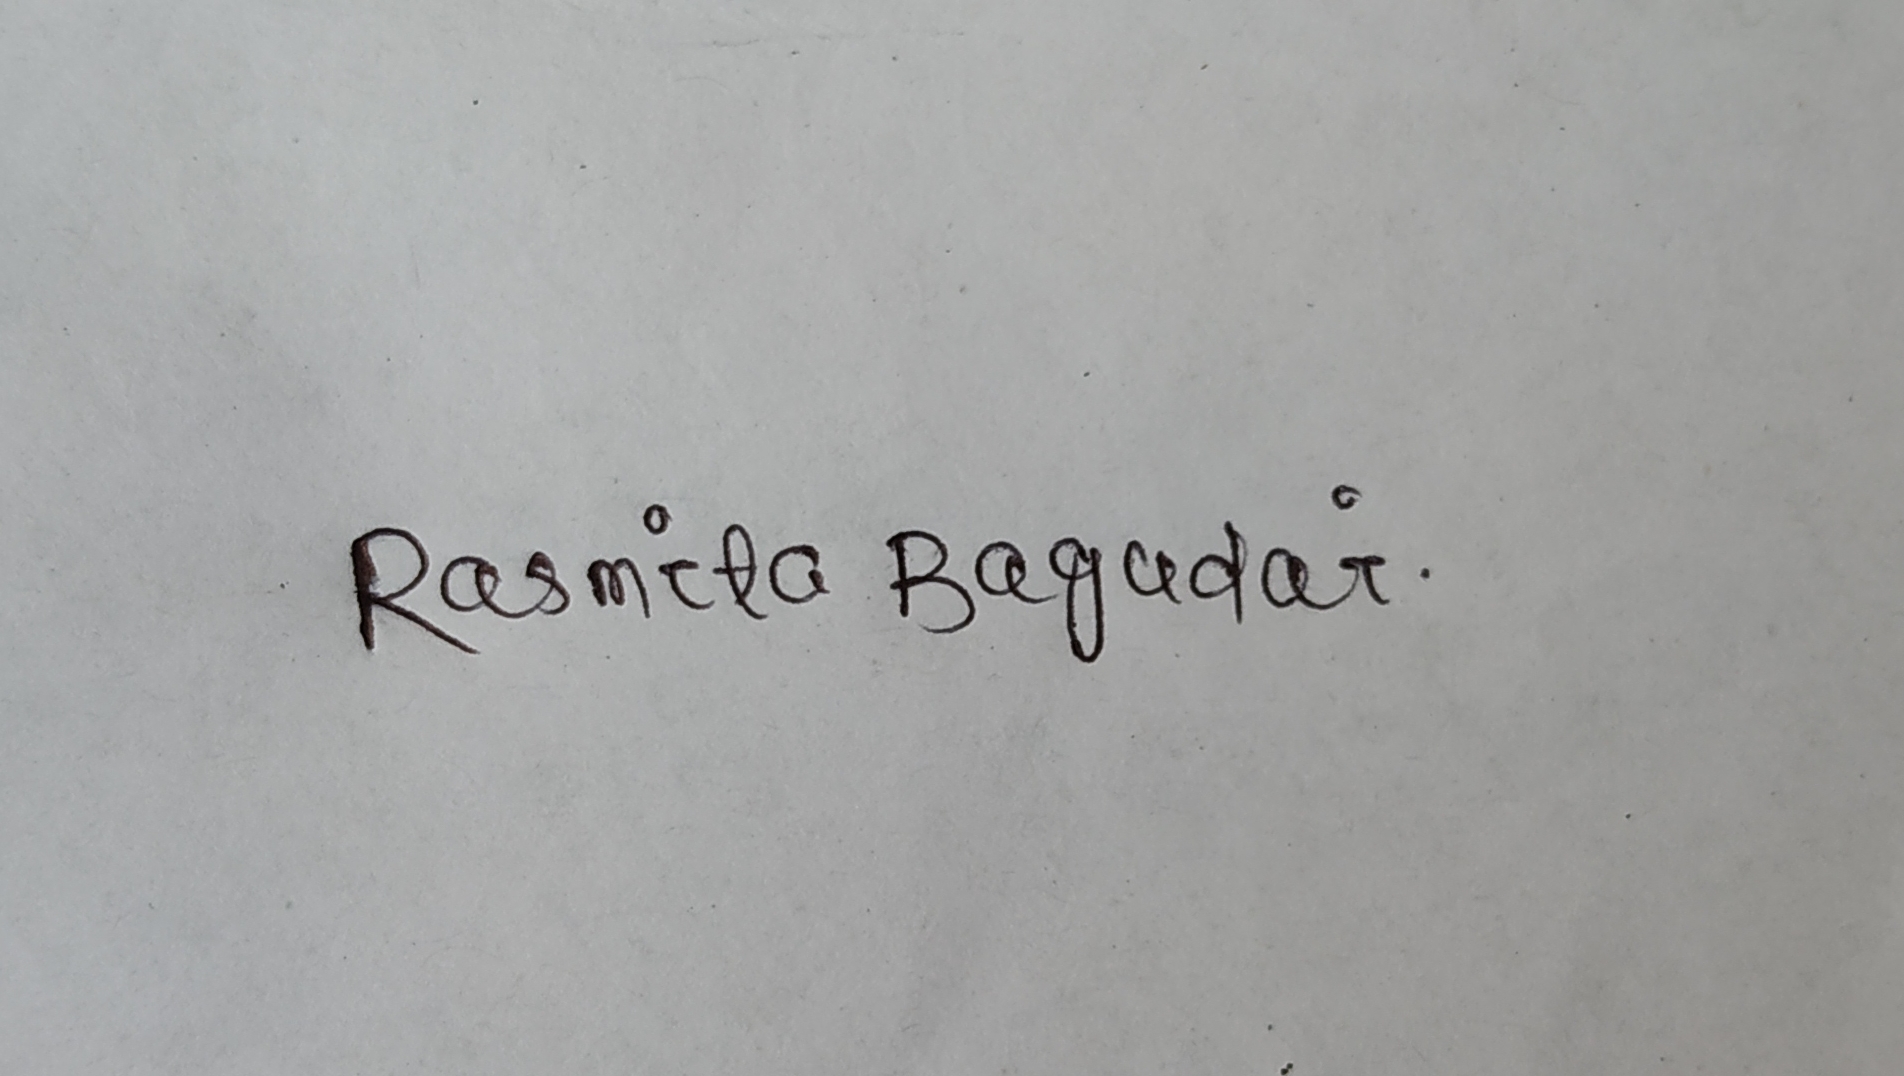 Rasmita Bagudai.